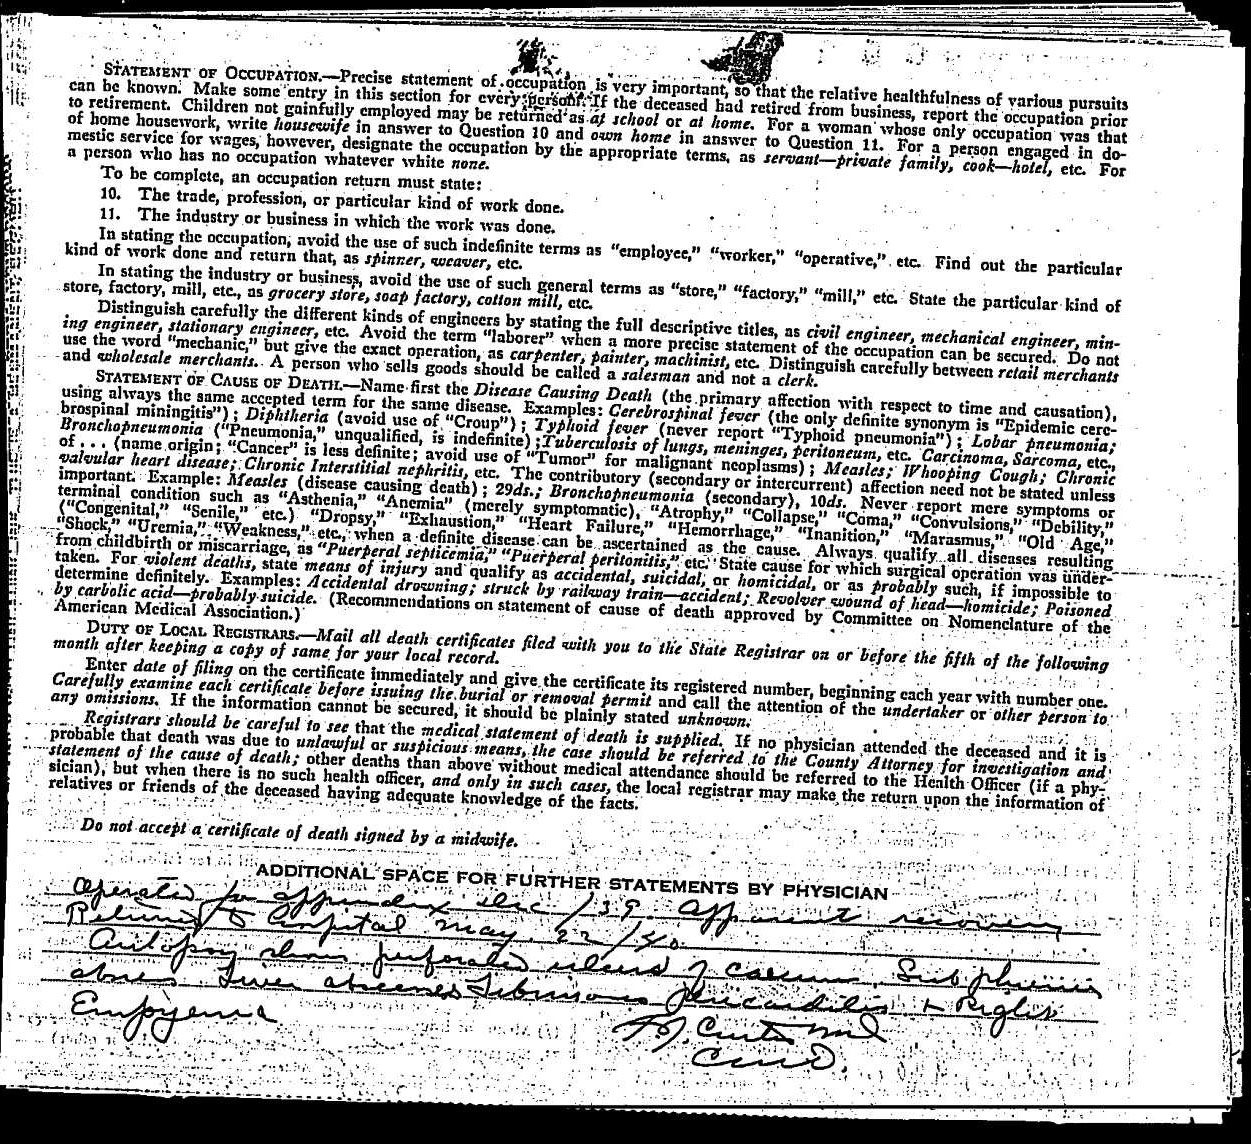 STATEMENT OF OCCUPATION.—Precise statement of occupation is very important, so that the relative healthfulness of various pursuits
can be known. Make some entry in this section for every person. If the deceased had retired from business, report the occupation prior
to retirement. Children not gainfully employed may be returned as at school or at home. For a woman whose only occupation was that
of home housework, write housewife in answer to Question 10 and own home in answer to Question 11. For a person engaged in do-
mestic service for wages, however, designate the occupation by the appropriate terms, as servant—private family, cook—hotel, etc. For
a person who has no occupation whatever white none.
To be complete, an occupation return must state:
10. The trade, profession, or particular kind of work done.
11. The industry or business in which the work was done.
In stating the occupation, avoid the use of such indefinite terms as "employee," "worker," "operative," etc. Find out the particular
kind of work done and return that, as spinner, weaver, etc.
In stating the industry or business, avoid the use of such general terms as "store," "factory," "mill," etc. State the particular kind of
store, factory, mill, etc., as grocery store, soap factory, cotton mill, etc.
Distinguish carefully the different kinds of engineers by stating the full descriptive titles, as civil engineer, mechanical engineer, min-
ing engineer, stationary engineer, etc. Avoid the term "laborer" when a more precise statement of the occupation can be secured. Do not
use the word "mechanic," but give the exact operation, as carpenter, painter, machinist, etc. Distinguish carefully between retail merchants
and wholesale merchants. A person who sells goods should be called a salesman and not a clerk.
STATEMENT OF CAUSE OF DEATH.—Name first the Disease Causing Death (the primary affection with respect to time and causation),
using always the same accepted term for the same disease. Examples: Cerebrospinal fever (the only definite synonym is "Epidemic cere-
brospinal miningitis"); Diphtheria (avoid use of "Croup"); Typhoid fever (never report "Typhoid pneumonia"); Lobar pneumonia;
Bronchopneumonia ("Pneumonia," unqualified, is indefinite); Tuberculosis of lungs, meninges, peritoneum, etc. Carcinoma, Sarcoma, etc.,
of . . . (name origin; "Cancer" is less definite; avoid use of "Tumor" for malignant neoplasms); Measles; Whooping Cough; Chronic
valvular heart disease; Chronic Interstitial nephritis, etc. The contributory (secondary or intercurrent) affection need not be stated unless
important. Example: Measles (disease causing death); 29ds.; Bronchopneumonia (secondary), 10ds. Never report mere symptoms or
terminal condition such as "Asthenia," "Anemia" (merely symptomatic), "Atrophy," "Collapse," "Coma," "Convulsions," "Debility,"
("Congenital," "Senile," etc.) "Dropsy," "Exhaustion," "Heart Failure," "Hemorrhage," "Inanition," "Marasmus," "Old Age,"
"Shock," "Uremia," "Weakness," etc., when a definite disease can be ascertained as the cause. Always qualify all diseases resulting
from childbirth or miscarriage, as "Puerperal septicemia," "Puerperal peritonitis," etc. State cause for which surgical operation was under-
taken. For violent deaths, state means of injury and qualify as accidental, suicidal, or homicidal, or as probably such, if impossible to
determine definitely. Examples: Accidental drowning; struck by railway train—accident; Revolver wound of head—homicide; Poisoned
by carbolic acid—probably suicide. (Recommendations on statement of cause of death approved by Committee on Nomenclature of the
American Medical Association.)
DUTY OF LOCAL REGISTRARS.—Mail all death certificates filed with you to the State Registrar on or before the fifth of the following
month after keeping a copy of same for your local record.
Enter date of filing on the certificate immediately and give the certificate its registered number, beginning each year with number one.
Carefully examine each certificate before issuing the burial or removal permit and call the attention of the undertaker or other person to
any omissions. If the information cannot be secured, it should be plainly stated unknown.
Registrars should be careful to see that the medical statement of death is supplied. If no physician attended the deceased and it is
probable that death was due to unlawful or suspicious means, the case should be referred to the County Attorney for investigation and
statement of the cause of death; other deaths than above without medical attendance should be referred to the Health Officer (if a phy-
sician), but when there is no such health officer, and only in such cases, the local registrar may make the return upon the information of
relatives or friends of the deceased having adequate knowledge of the facts.
Do not accept a certificate of death signed by a midwife.
ADDITIONAL SPACE FOR FURTHER STATEMENTS BY PHYSICIAN
Operated for appendix Dec /39. Apparent recovery
Returned to Hospital May 22/40
Autopsy shows perforated ulcers of caecum. Sub phrenic
abces Liver abscesses Fibrinous Pericarditis + Right
Empyema
Curtis Md